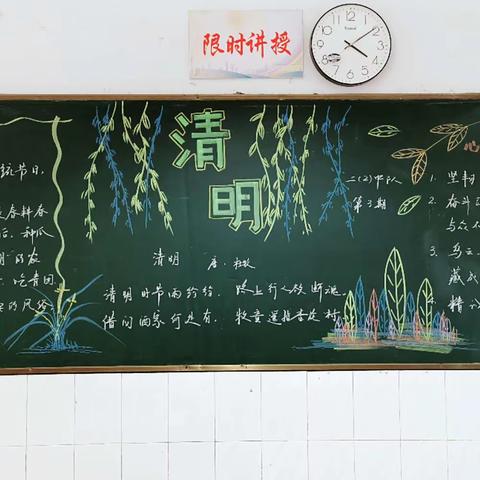 限时讲授
清明
统节日.
春耕春
种瓜
吃青团
的风俗
二(2)中队
第3期
清明 唐.杜牧
清明时节雨纷纷. 路上行人欲断魂.
借问酒家何处有. 牧童遥指杏花村.
心
1. 坚韧
2. 奋斗
与众
3. 乌云
藏
4. 精